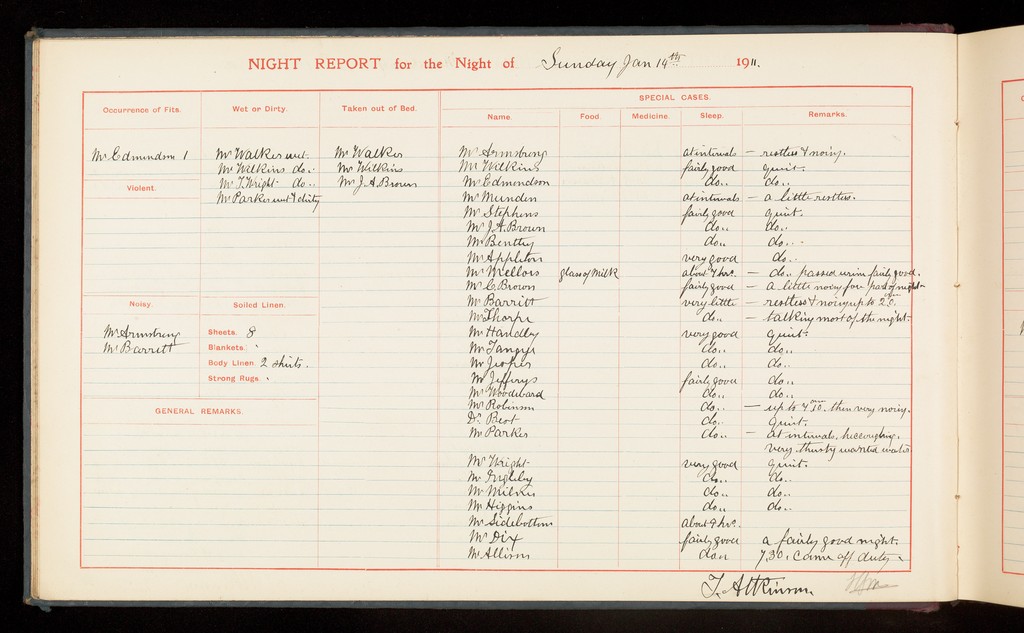 NIGHT REPORT for the Night of Sunday Jan 14th 1911.
Occurrence of Fits. Wet or Dirty. Taken out of Bed. SPECIAL CASES.
Name. Food. Medicine. Sleep. Remarks.
Mr Edmundson 1 Mr Walker wet. Mr Walker Mr Armstrong at intervals – restless & noisy.
Mr Wilkins do.. Mr Wilkins Mr Wilkins fairly good quiet.
Violent. Mr T. Wright do.. Mr J. A. Brown Mr Edmondson do.. do..
Mr Parker wet & dirty Mr Munden at intervals – a little restless.
Mr Stephens fairly good quiet.
Mr J. A. Brown do.. do..
Mr Benttey do.. do..
Mr Appleton very good do..
Mr Mellors glass of Milk about 7 hrs. – do.. passed urine fairly good.
Mr C. Brown fairly good – a little noisy fore part of night
Noisy. Soiled Linen. Mr Barritt very little – restless & noisy up to 2
Mr Thorpe do.. – talking most of the night.
Mr Armstrong Sheets. 8 Mr Handley very good quiet.
Mr Barrett Blankets. Mr Tangye do.. do..
Body Linen. 2 shirts. Mr do.. do..
Strong Rugs. Mr Jefferys fairly good do..
Mr Woodward do.. do..
GENERAL REMARKS. Mr Robinson do.. – up to 4 30. then very noisy.
Dr. Best do.. quiet.
Mr Parker do.. – at intervals, hiccoughing.
very thirsty wanted water
Mr Wright very good quiet.
Mr Ingleby do.. do..
Mr Milnes do.. do..
Mr Higgins do.. do..
Mr Sidebottom about 9 hrs.
Mr Dix fairly good a fairly good night.
Mr Allison do.. 7.30. came off duty.
T. Atkinson.